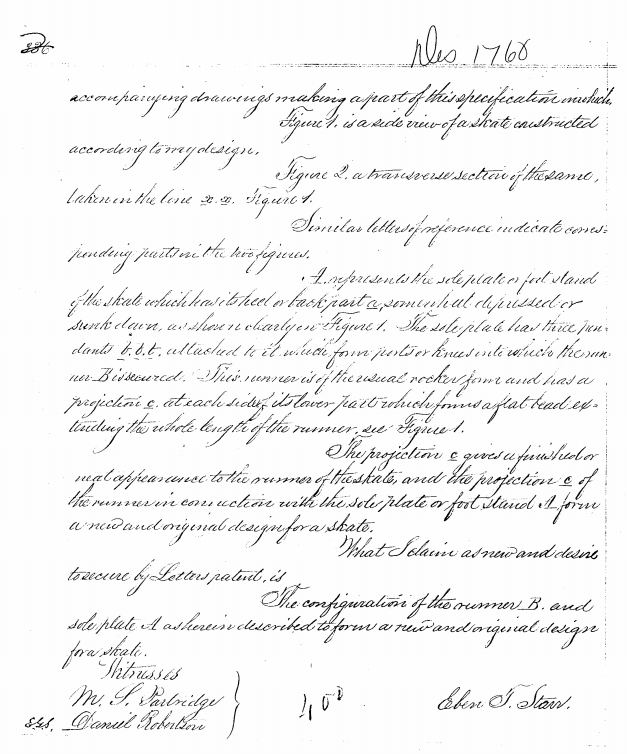 Des 1768
accompanying drawings making a part of this specification in which,
Figure 1. is a side view of a skate constructed
according to my design.
Figure 2. a transverse section of the same,
taken in the line x.x. Figure 1.
Similar letters of reference indicate corres=
ponding parts in the two figures.
A. represents the sole plate or foot stand
of the skate which has its heel or back part a, somewhat depressed or
sunk down, as shown clearly in Figure 1. The sole plate has three pen=
dants b. b. b. attached to it which form posts or knees into which the run=
ner B is secured. This runner is of the usual rocker form and has a
projection c. at each side of its lower part which forms a flat bead ex=
tending the whole length of the runner, see Figure 1.
The projection c gives a finished or
neat appearance to the runner of the skate, and the projection c of
the runner in conuction with the sole plate or foot stand A form
a new and original design for a skate.
What I claim as new and desire
to secure by Letters patent, is
The configuration of the runner B. and
sole plate A as herein described to form a new and original design
for a skate.
Witnesses
M. S. Partridge
Daniel Robertson
Eben T. Starr.